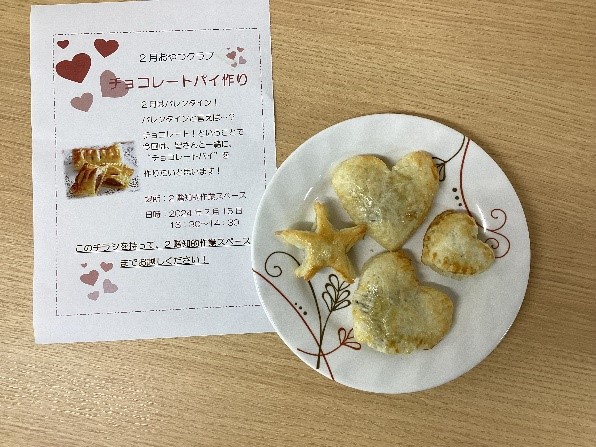 2月おやつクラブ
チョコレートパイ作り
2月はバレンタイン！
バレンタインと言えば・・・
チョコレート！ということで
今回は、皆さんと一緒に、
“チョコレートパイ”を
作りたいと思います！
場所：2階知的作業スペース
日時：2024年2月15日
13：30～14：30
このチラシを持って、2階知的作業スペース
までお越しください！